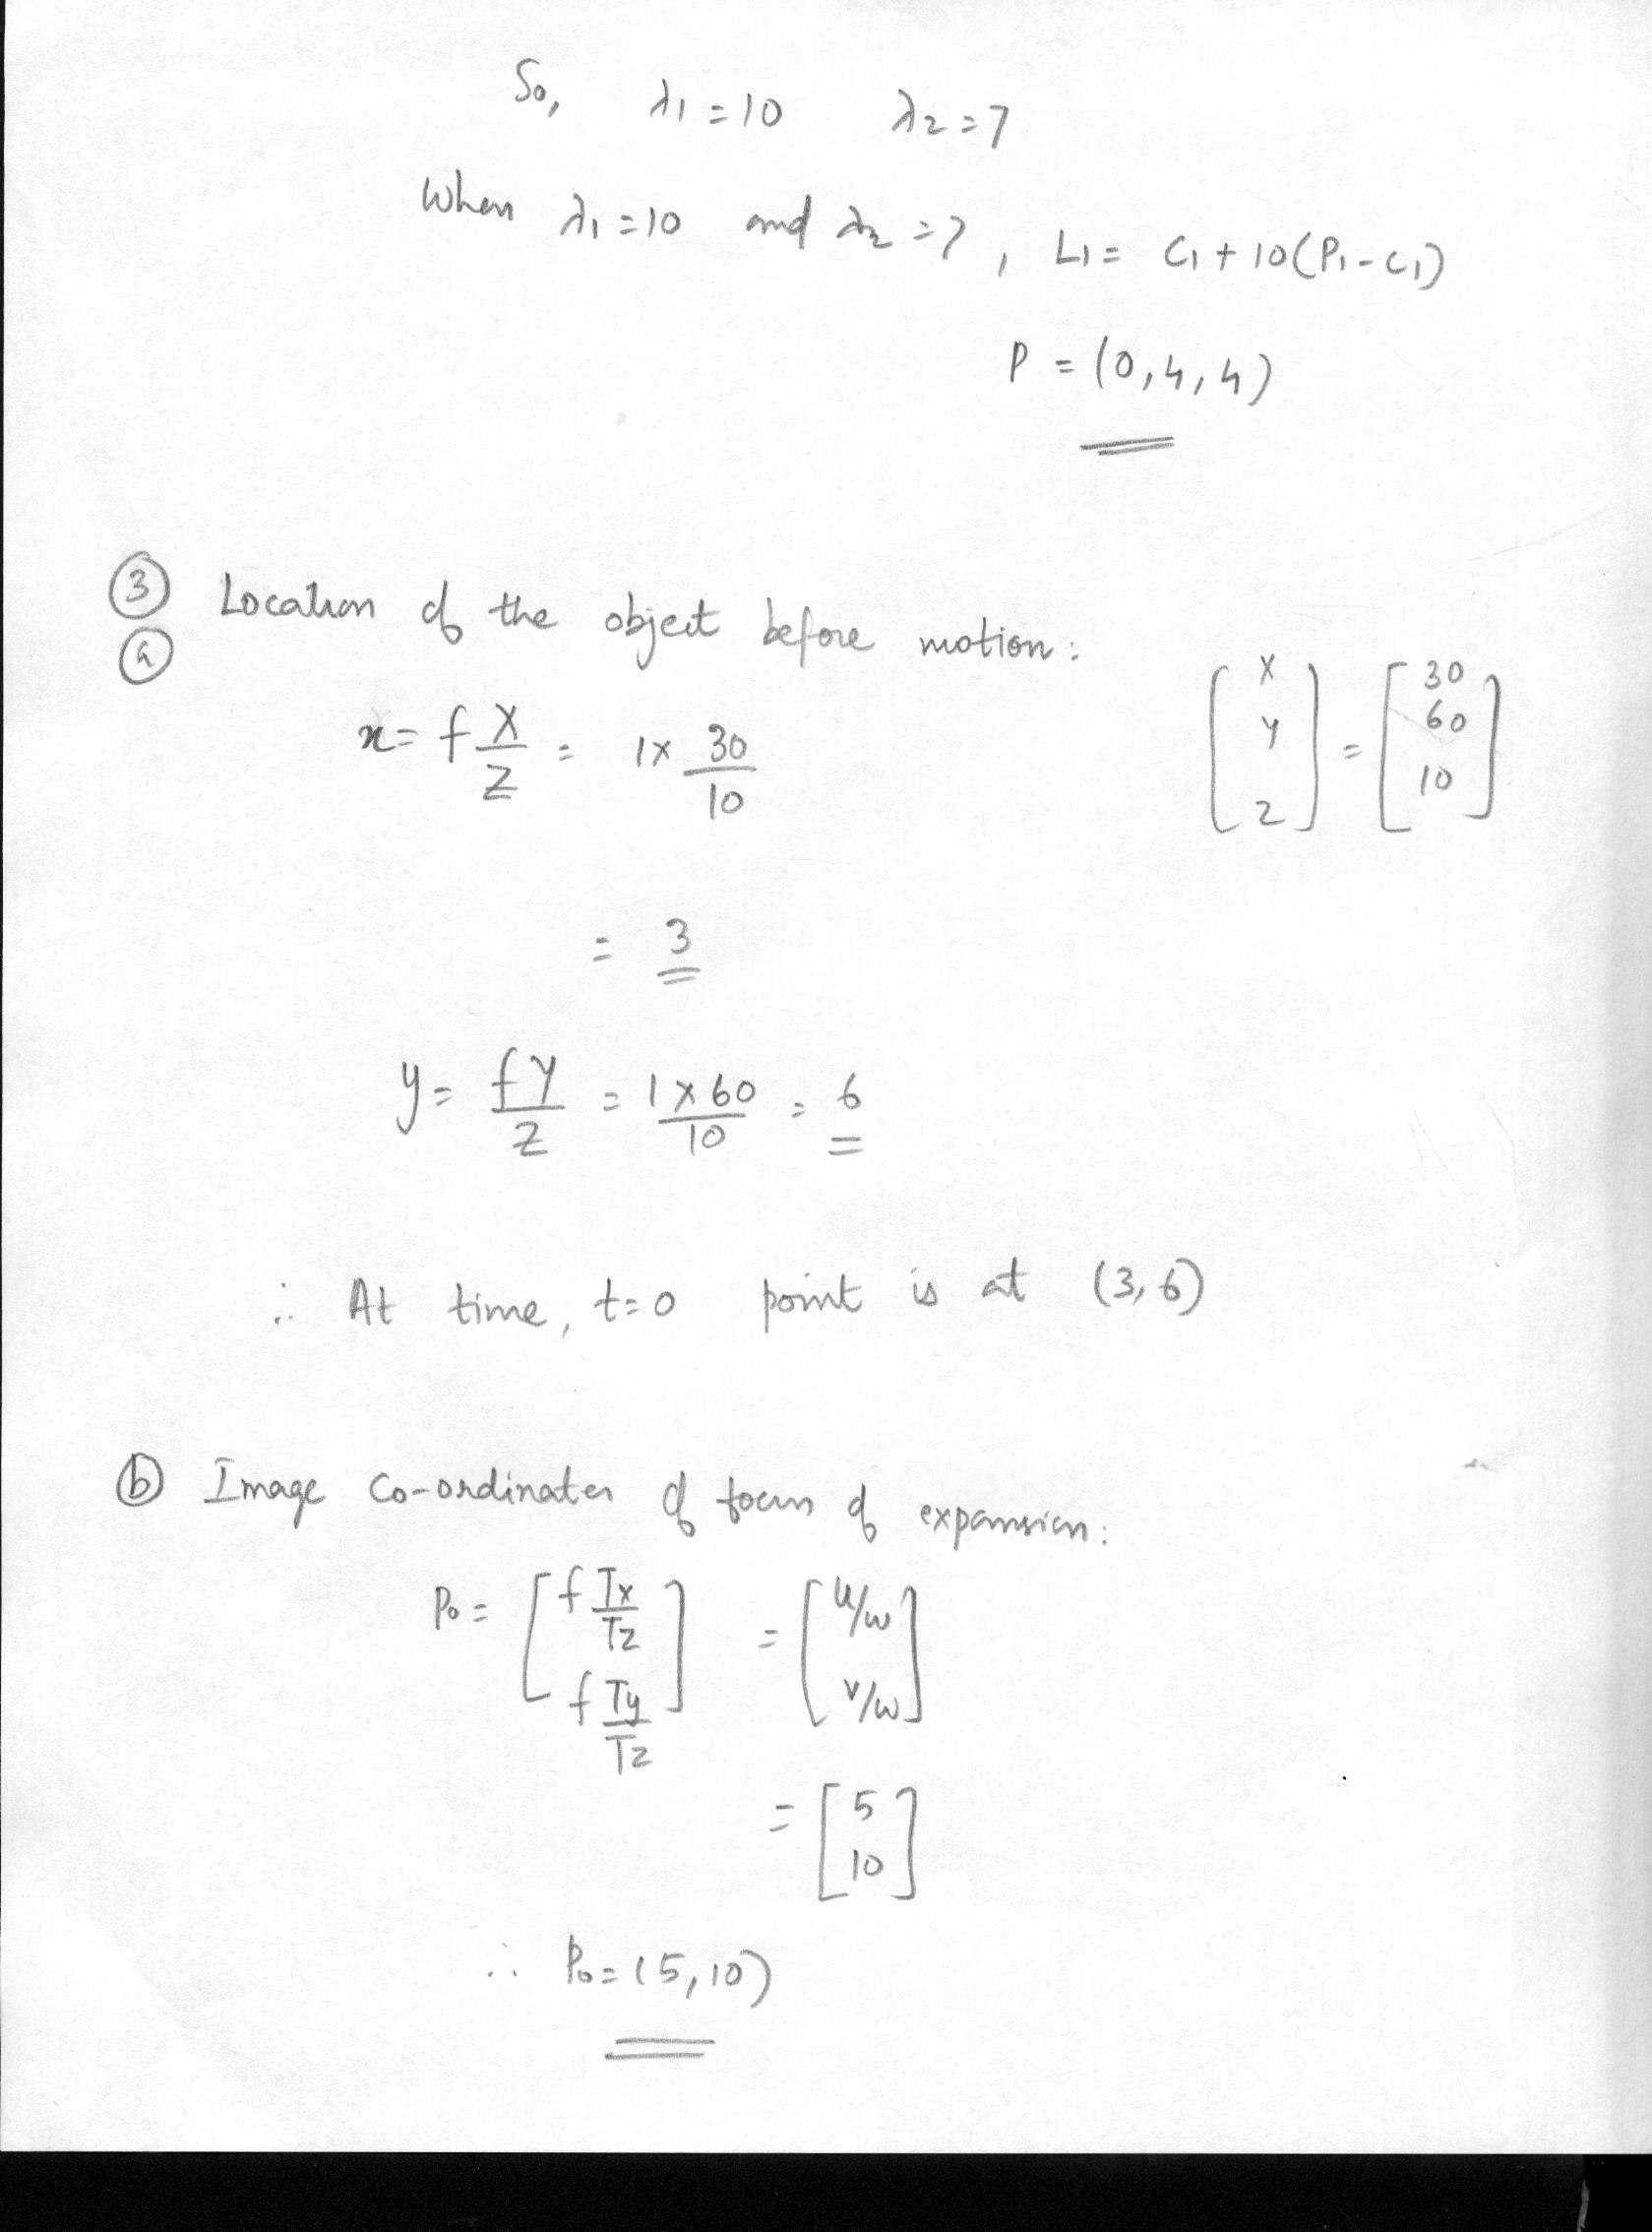 So, λ1 = 10 λ2 = 7
When λ1 = 10 and λ2 = 7, L1 = C1 + 10(P1 - C1)
P = (0,4,4)
③ Location of the object before motion:
ⓐ
x = f X/Z = 1 x 30/10 [X Y Z] = [30 60 10]
= 3
y = fY/Z = 1 x 60/10 = 6
∴ At time, t=0 point is at (3,6)
ⓑ Image Co-ordinates of focus of expansion:
P0 = [f Tx/Tz f Ty/Tz] = [u/w v/w]
= [5 10]
∴ P0 = (5,10)